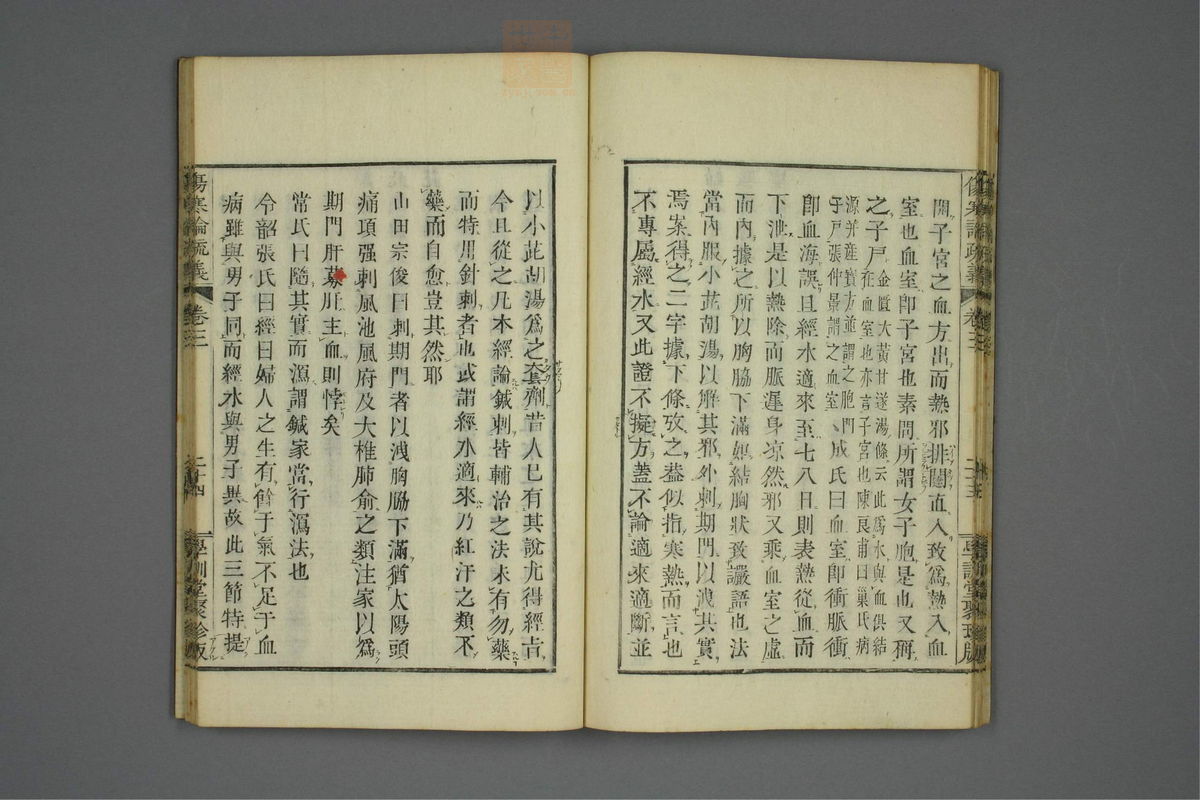 開子宮之血方出而熱邪排闥直入致爲熱入血
室也血室卽子宮也素問所謂女子胞是也又稱
之子戸金匱大黃甘遂湯條云此爲水與血俱結
在血室也亦言子宮也陳良甫曰巢氏病
源并產寶方並謂之胞門
子戸張仲景謂之血室成氏曰血室卽衝脈衝
卽血海誤且經水適來至七八日則表熱從血而
下泄是以熱除而脈遲身凉然邪又乘血室之虛
而內據之所以胸脇下滿如結胸狀致讝語也法
當內服小茈胡湯以解其邪外刺期門以洩其實
焉案得之二字據下條攷之葢似指寒熱而言也
不專屬經水又此證不擬方蓋不論適來適斷並
以小茈胡湯爲之套劑昔人已有其說尤得經旨
今且從之凡本經論鍼刺皆輔治之法未有勿藥
而特用針刺者也或謂經水適來乃紅汗之類不
藥而自愈豈其然耶
山田宗俊曰刺期門者以洩胸脇下滿猶太陽頭
痛項强刺風池風府及大椎肺俞之類注家以爲
期門肝募肝主血則悖矣
常氏曰隨其實而瀉謂鍼家當行瀉法也
令韶張氏曰經曰婦人之生有餘于氣不足于血
病雖與男子同而經水與男子異故此三節特提
傷寒論疏義 卷三 二十四 學訓堂聚珍版